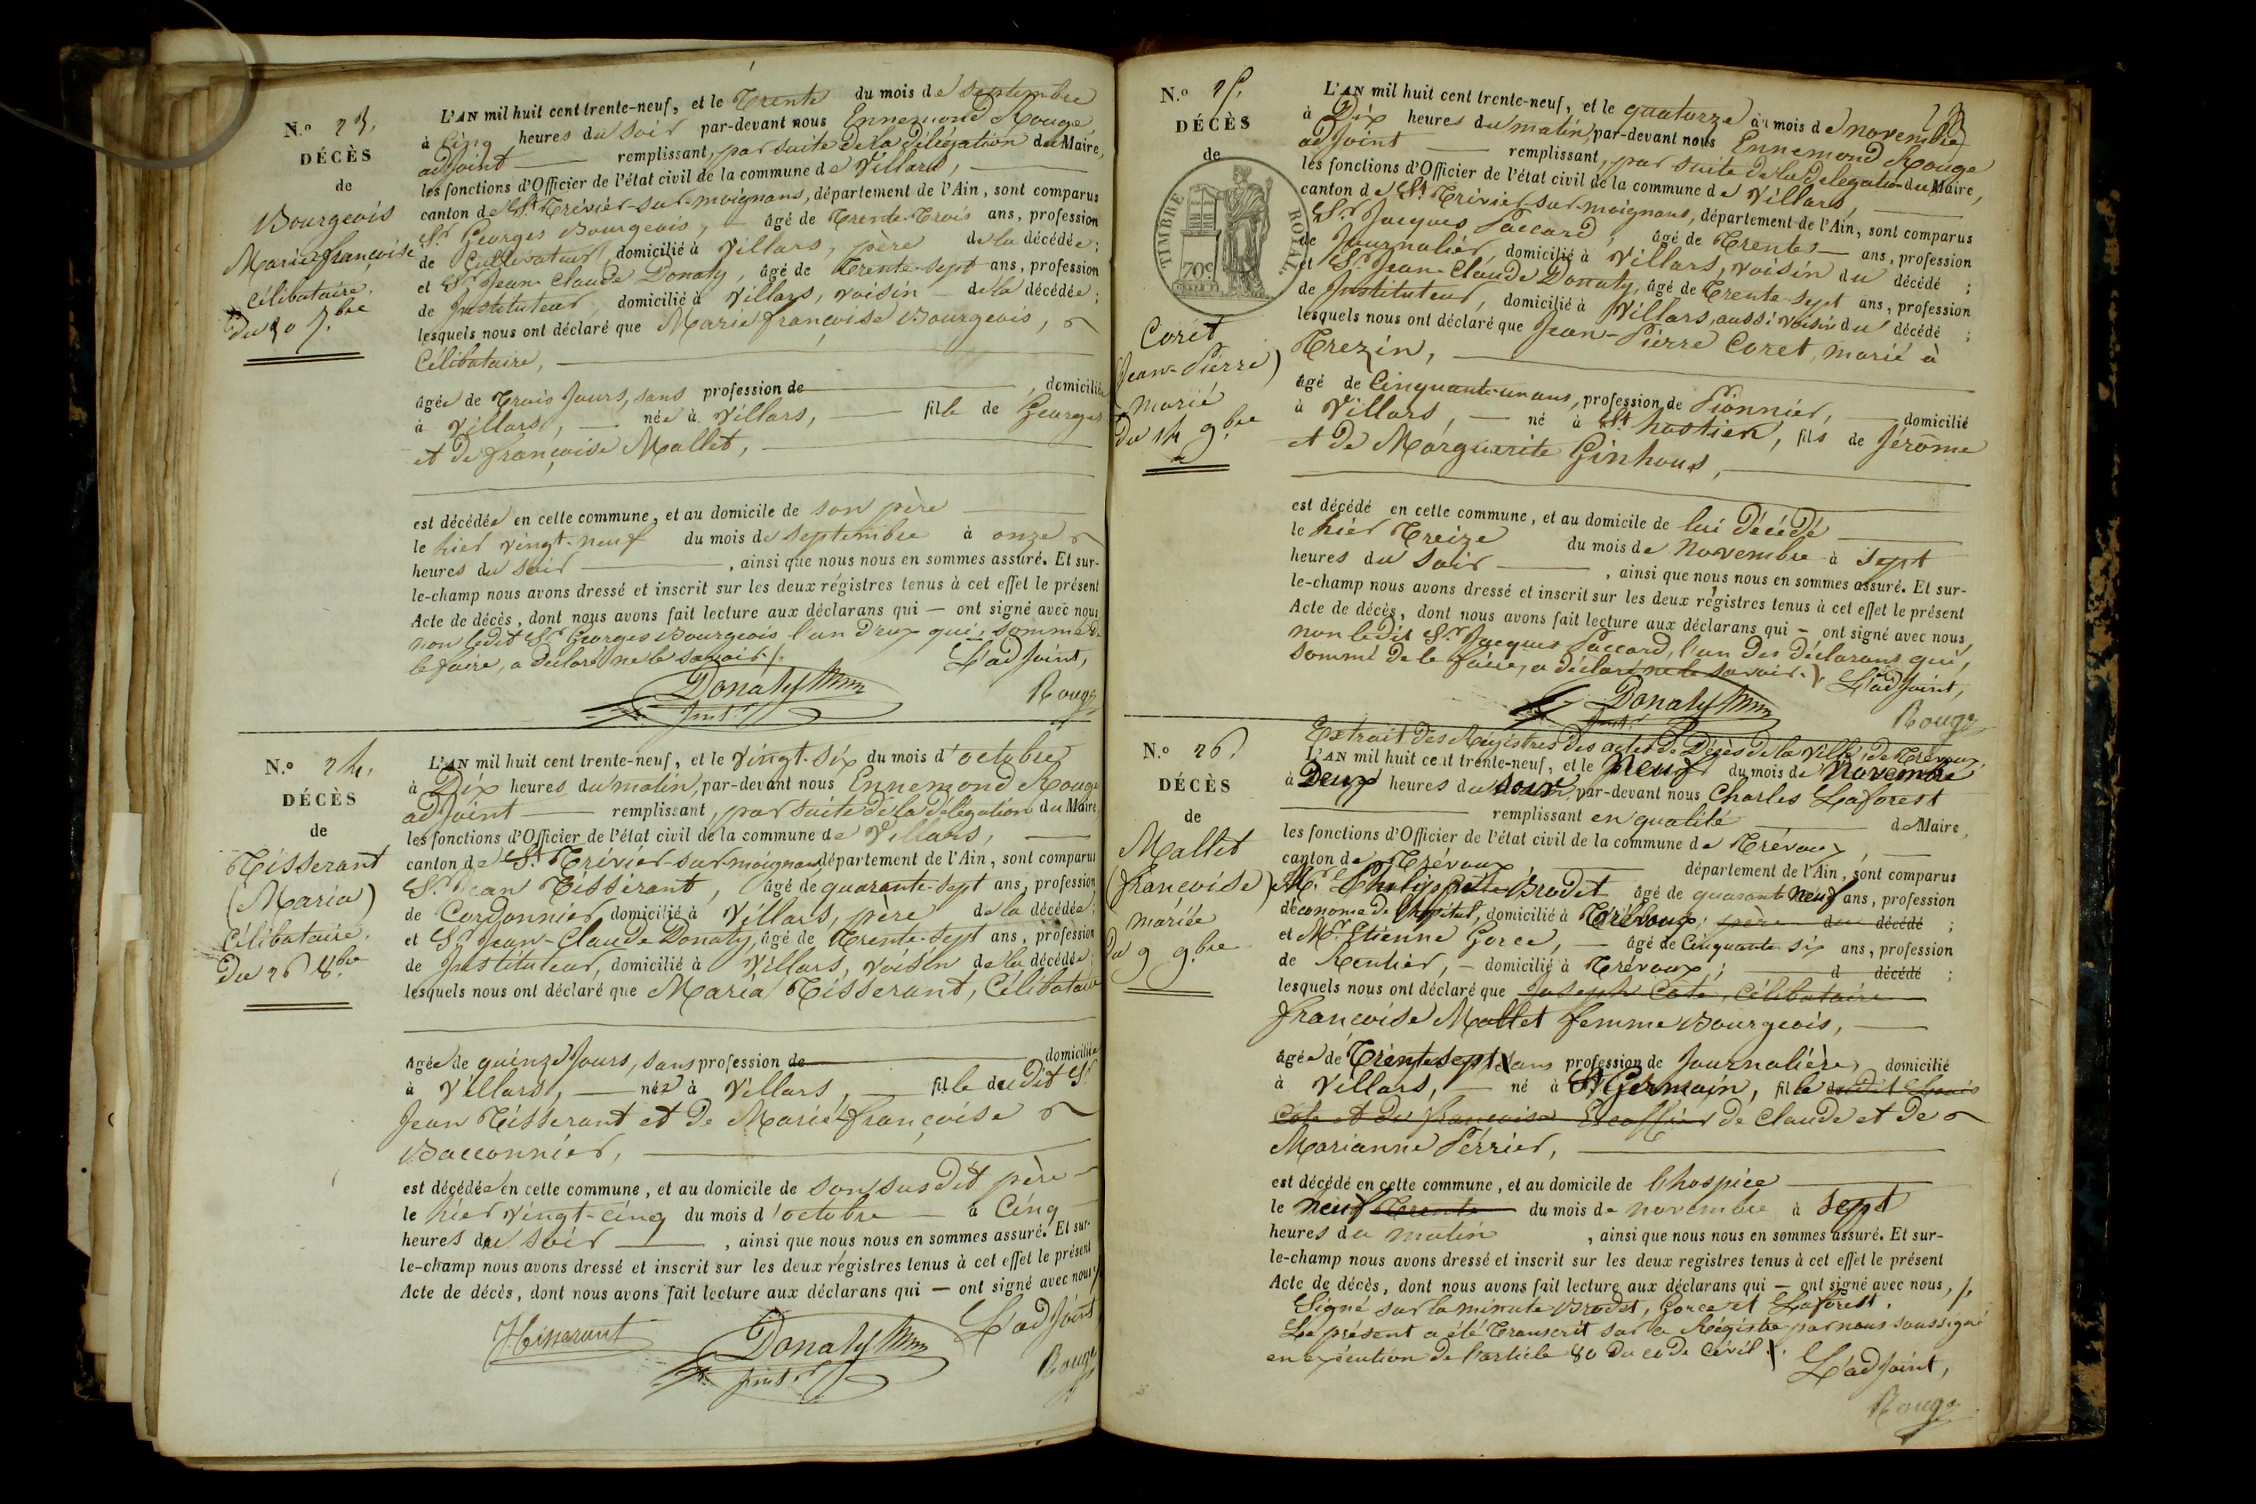 N.o 23.
DÉCÈS
de
Bourgeois
Marie françoise
Célibataire.
Du 30 7.bre
L'AN mil huit cent trente-neuf, et le Trente du mois de septembre
à Cinq heures du soir par-devant nous Ennemond Rouge
adjoint remplissant, par suite de la délégation du Maire,
les fonctions d'Officier de l'état civil de la commune de Villars,
canton de St. Trivier-sur-moignans, département de l'Ain, sont comparus
Sr. Georges Bourgeois, âgé de Trente-Trois ans, profession
de Cultivateur, domicilié à Villars, père de la décédée ;
et Sr. Jean-Claude Donaty, âgé de Trente-sept ans, profession
de Instituteur, domicilié à Villars, voisin de la décédée ;
lesquels nous ont déclaré que Marie françoise Bourgeois,
Célibataire,
âgée de Trois Jours, sans profession de , domiciliée
à Villars, née à Villars, fille de Georges
et de françoise Mallet,
est décédée en cette commune, et au domicile de son père
le hier vingt-neuf du mois de septembre à onze
heures du soir , ainsi que nous nous en sommes assuré. Et sur-
le-champ nous avons dressé et inscrit sur les deux régistres tenus à cet effet le présent
Acte de décès, dont nous avons fait lecture aux déclarans qui — ont signé avec nous
non ledit Sr. Georges Bourgeois l'un d'eux qui, sommé de
le faire, a déclaré ne le savoir.
L'adjoint,
Donaty
Instr.
Rouge
N.o 24.
DÉCÈS
de
Tisserant
(Maria)
Célibataire.
Du 26 8.bre
L'AN mil huit cent trente-neuf, et le vingt-six du mois d'octobre
à Dix heures du matin, par-devant nous Ennemond Rouge
adjoint remplissant, par suite de la délégation du Maire,
les fonctions d'Officier de l'état civil de la commune de Villars,
canton de St. Trivier-sur-moignans département de l'Ain, sont comparus
Sr. Jean Tisserant, âgé de quarante-sept ans, profession
de Cordonnier, domicilié à Villars, père de la décédée ;
et Sr. Jean-Claude Donaty, âgé de Trente-sept ans, profession
de Instituteur, domicilié à Villars, voisin de la décédée ;
lesquels nous ont déclaré que Maria Tisserant, Célibataire
âgée de quinze Jours, sans profession de domiciliée
à Villars, née à Villars, fille dudit Sr.
Jean Tisserant et de Marie-françoise
Bacconnier,
est décédée en cette commune, et au domicile de son susdit père
le hier vingt-cinq du mois d'octobre à Cinq
heures du soir , ainsi que nous nous en sommes assuré. Et sur-
le-champ nous avons dressé et inscrit sur les deux régistres tenus à cet effet le présent
Acte de décès, dont nous avons fait lecture aux déclarans qui — ont signé avec nous
L'adjoint
J. Tisserant
Donaty
Instr.
Rouge
N.o 25.
DÉCÈS
de
TIMBRE ROYAL.
70c.
Coret
(Jean-Pierre)
marié
Du 14 9.bre
L'AN mil huit cent trente-neuf, et le quatorze du mois de novembre
à Dix heures du matin, par-devant nous Ennemond Rouge
adjoint remplissant, par suite de la délégation du Maire,
les fonctions d'Officier de l'état civil de la commune de Villars,
canton de St. Trivier-sur-moignans, département de l'Ain, sont comparus
Sr. Jacques Paccard, âgé de Trente ans, profession
de Journalier, domicilié à Villars, voisin du décédé ;
et Sr. Jean-Claude Donaty, âgé de Trente-sept ans, profession
de Instituteur, domicilié à Villars, aussi voisin du décédé ;
lesquels nous ont déclaré que Jean-Pierre Coret, marié à
Trezin,
âgé de Cinquante-un ans, profession de Pionnier, domicilié
à Villars, né à St hostien, fils de Jérome
et de Marguerite Ginhoux,
est décédé en cette commune, et au domicile de lui Décédé
le hier Treize du mois de Novembre à sept
heures du soir , ainsi que nous nous en sommes assuré. Et sur-
le-champ nous avons dressé et inscrit sur les deux régistres tenus à cet effet le présent
Acte de décès, dont nous avons fait lecture aux déclarans qui — ont signé avec nous,
non ledit Sr. Jacques Paccard, l'un des déclarans qui,
sommé de le faire, a déclaré ne le savoir.
L'adjoint,
Donaty
Instr.
Rouge
N.o 26
DÉCÈS
de
Mallet
(françoise)
mariée
Du 9 9.bre
Extrait des Régistres des actes de Décès de la Ville de Trévoux.
L'AN mil huit cent trente-neuf, et le Neuf du mois de Novembre
à Deux heures du soir, par-devant nous Charles Laforest
remplissant en qualité de Maire,
les fonctions d'Officier de l'état civil de la commune de Trévoux,
canton de Trévoux, département de l'Ain, sont comparus
Mr. Brodet âgé de quarante neuf ans, profession
d'économe de l'hôpital, domicilié à Trévoux, père du décédé ;
et Mr. Etienne Gorce, âgé de Cinquante six ans, profession
de Rentier, domicilié à Trévoux ; d décédé ;
lesquels nous ont déclaré que Joseph Cote, Célibataire
françoise Mallet femme Bourgeois,
âgée de Trente sept ans profession de Journalière, domicilié
à Villars, né à St Germain, fille dudit
Cote et de françoise de Claude et de
Marianne Perrier,
est décédé en cette commune, et au domicile de l'hospice
le neuf Trente du mois de novembre à sept
heures du matin , ainsi que nous nous en sommes assuré. Et sur-
le-champ nous avons dressé et inscrit sur les deux registres tenus à cet effet le présent
Acte de décès, dont nous avons fait lecture aux déclarans qui — ont signé avec nous,
Signé sur la minute Brodet, Gorce et Laforest.
Le présent a été Transcrit sur ce Régistre par nous soussigné
en exécution de l'article 80 du code Civil.
L'adjoint,
Rouge